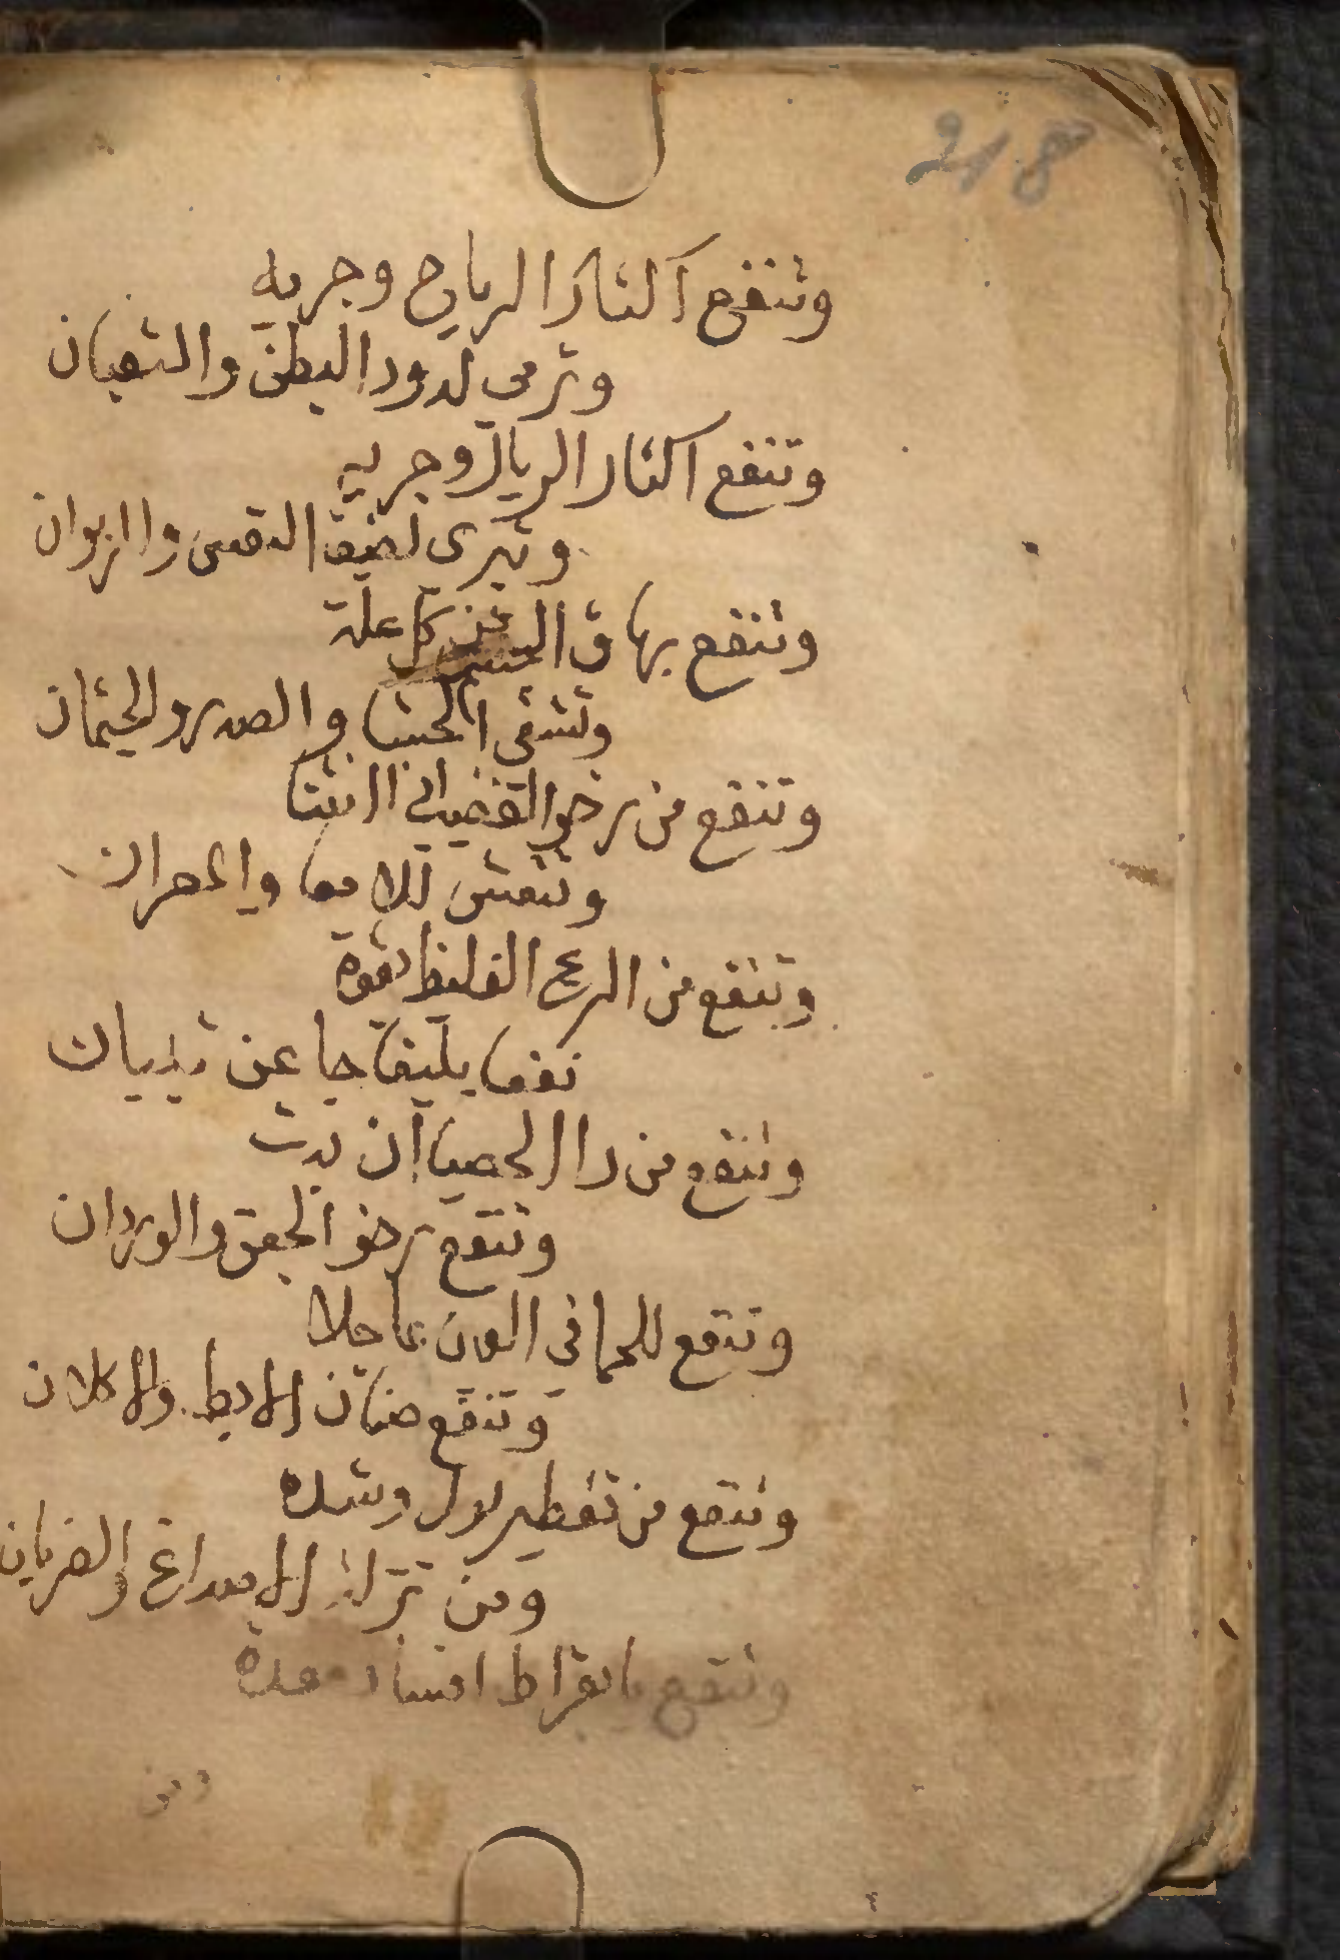 218
وتنفع اكثار الرياح وجربه
وترمي لدود البطن والثعبان
وتنفع اكثار الرياق وجربه
وتبري لضيق النفس والربوان
وتنفع بهاق من كل علة
وتشفي الحشا والصدر والجثمان
وتنفع من رخو القضيب الى انثنا
وتنعش للامعا والمصران
وتنفع من الريح الغليظ بقوة
نفعا بليغا جا عن تبيان
وتنفع من دا الحصا ان بدت
وتنفع رخو الجعق والوردان
وتنفع للحما في العين عاجلا
وتنفع ضنان الابط والاكلان
وتنفع من تقطير بول وشده
ومن نزلة الاصداغ والضربان
وتنفع يابقراط افساد معدة
ومن